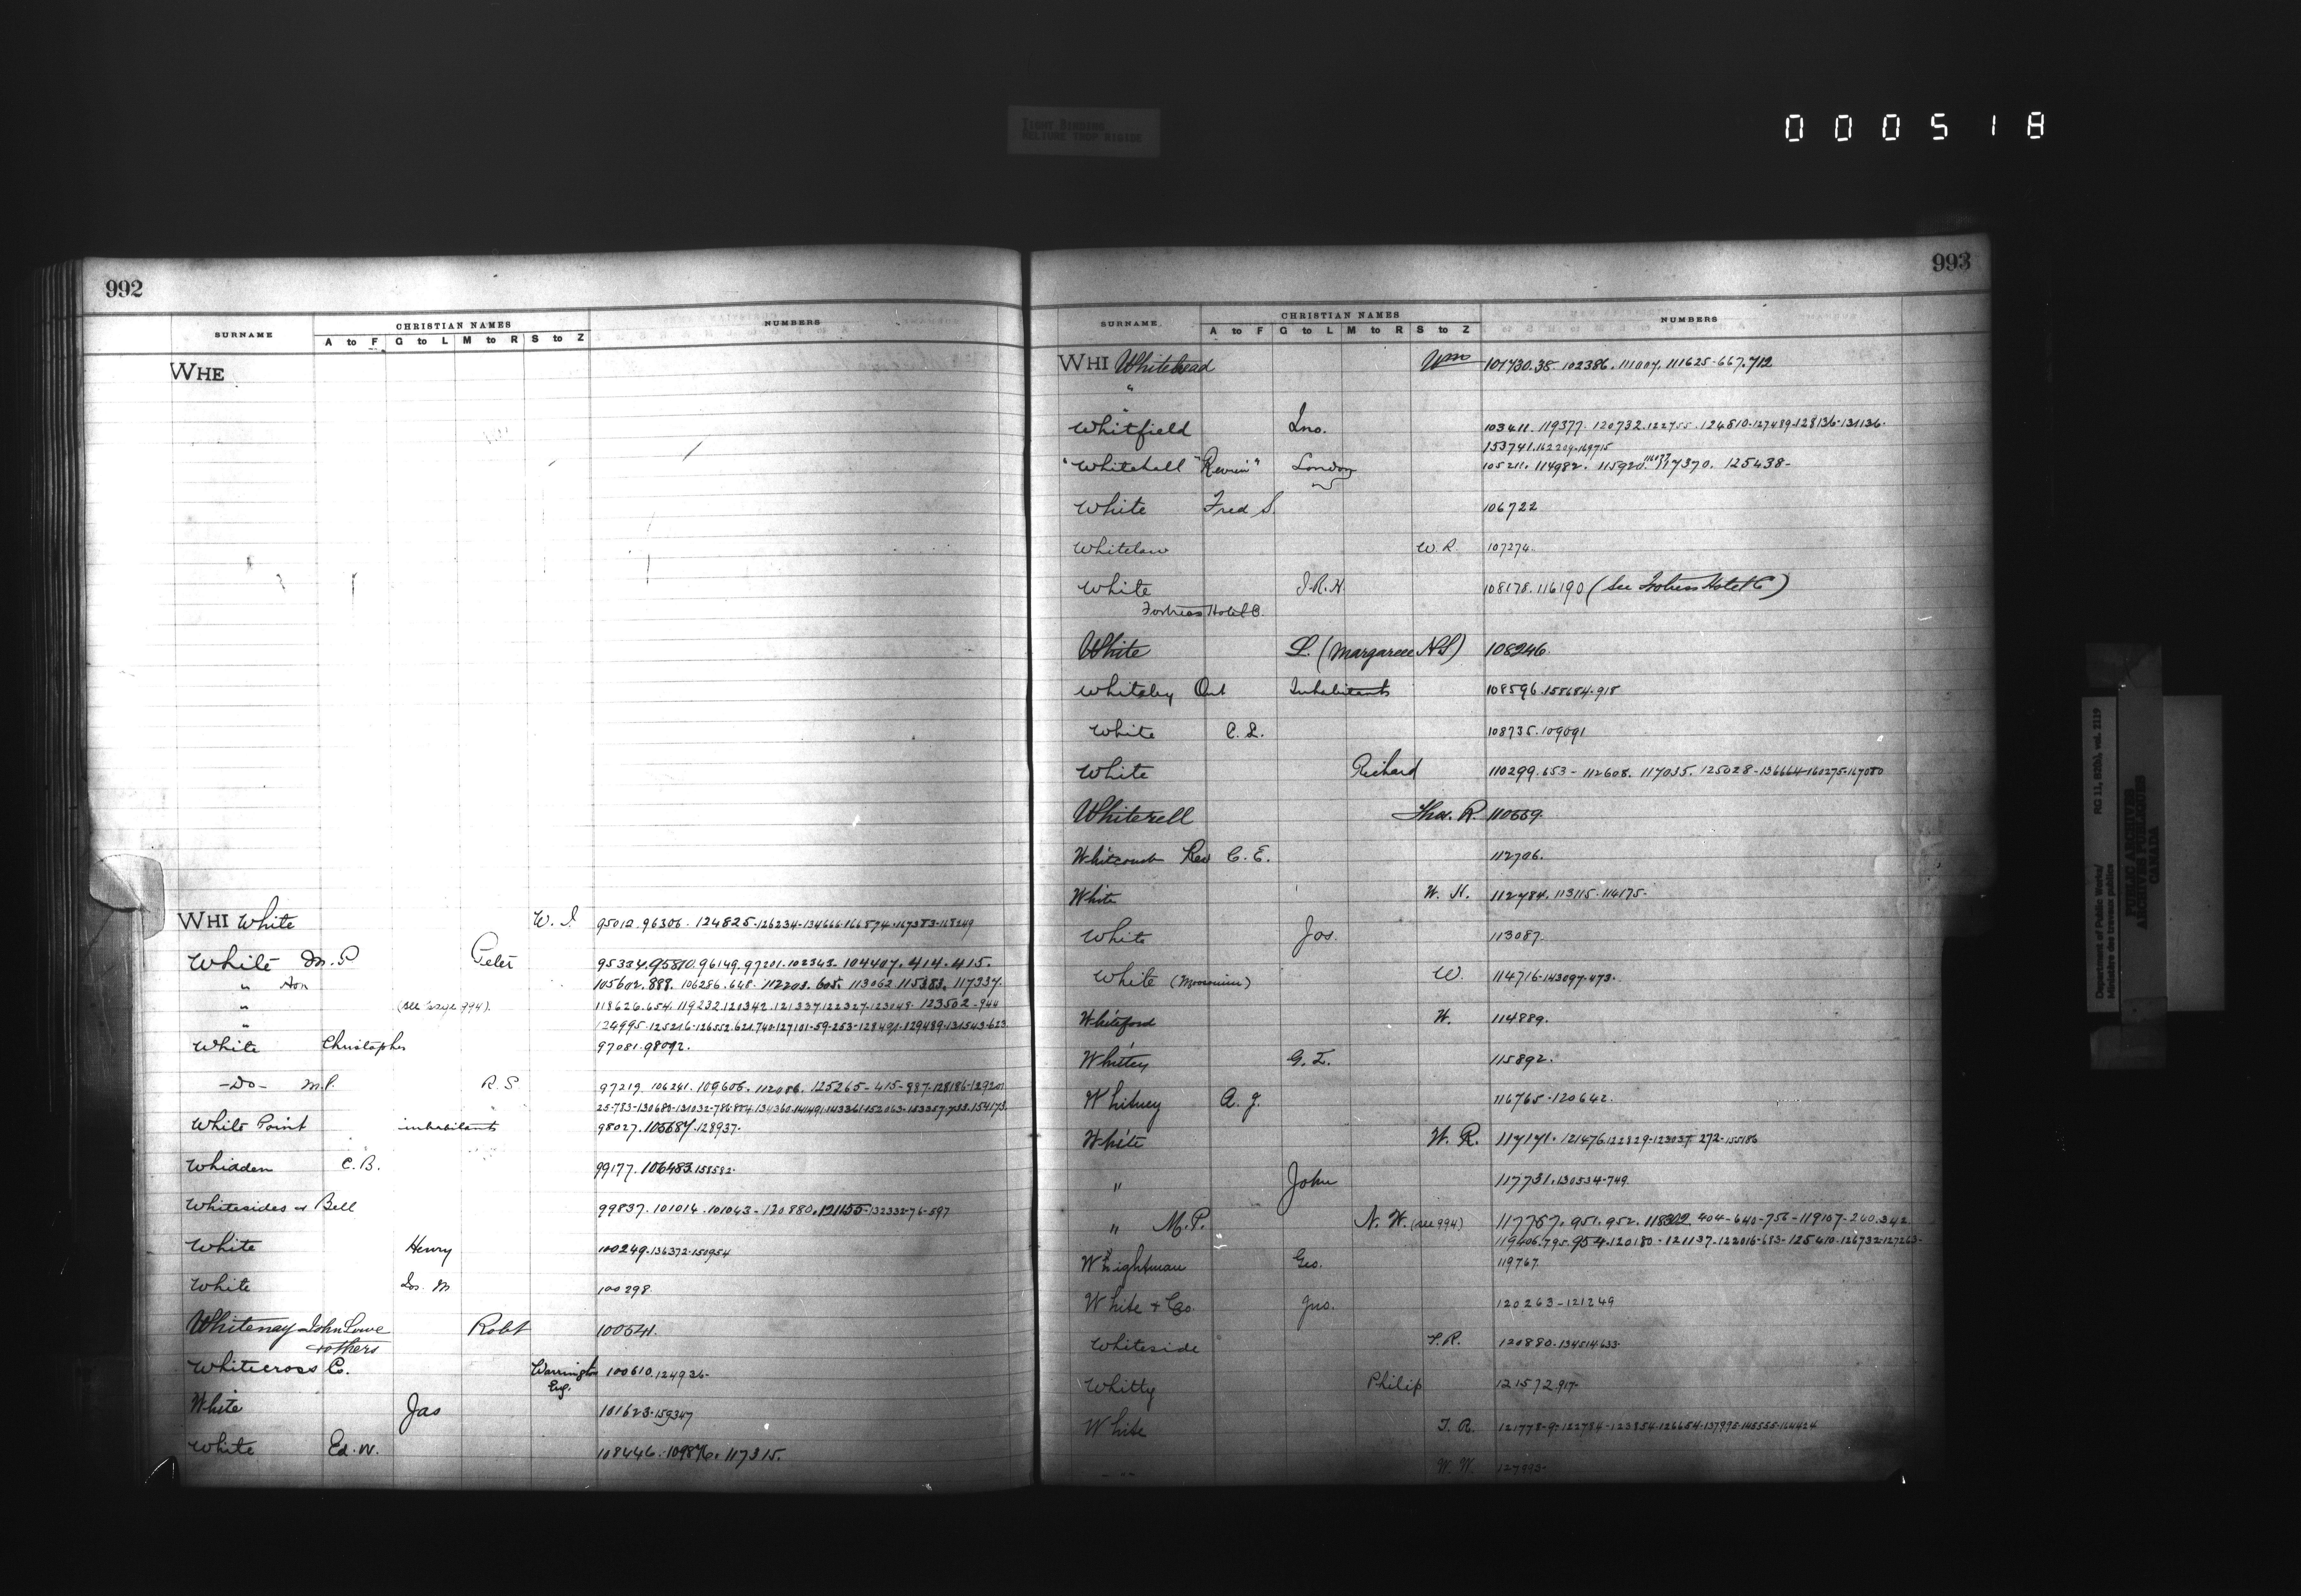 TIGHT BINDING
RELIURE TROP RIGIDE
000518
992
SURNAME CHRISTIAN NAMES NUMBERS
A to F G to L M to R S to Z
WHE
WHI White W. I. 95012. 96306. 124825. 126234-134666.166574.167383.168249
White M.P. Peter 95334.95810.96149.97201.102343.104407.414.415.
" Hon 105602.888. 106286.648. 112203.605. 113062.115383. 117337.
" (see page 994). 118626.654.119232.121342.121337.122327.123048. 123502-944
" 124995.125216-126552.621.740.127101-59-253-128491.129489.131543-623.
White Christopher 97081.98092.
-Do- M.P. R. S 97219. 106241. 109606. 112086. 125265-415-887-128186-129201
White Point inhabitants 98027. 105687.128937.
Whidden C. B. 99177. 106483.158582.
Whitesides & Bell 99837. 101014. 101043-120880.121155-132332-76-597
White Henry 100249.136372.150954
White Jos. M 100298
Whitenay John Lowe Robt 100541.
& others
Whitecross Co. Warrington 100610.124936-
Eng.
White Jas 101623.159347
White Ed. W. 108446. 109876. 117315.
993
SURNAME CHRISTIAN NAMES NUMBERS
A to F G to L M to R S to Z
WHI Whitehead Wm 101730.38. 102386. 111007. 111625-667.712
"
"
Whitfield Jno. 103411. 119377. 120732.122755. 124510-127489.128136-131136.
153741.162209.169715
"Whitehall "Review" London 105211. 114982. 115920. 116077 117370. 125438-
White Fred S. 106722
Whitelaw W. R. 107274.
White J. R. H. 108178. 116190 (See Fortress Hotel Co)
Fortress Hotel Co.
White L. (Margaree N.S) 108246.
Whiteley Ont Inhabitants 108596.158684.918
White C. L. 108735.109091
White Richard 110299.653-112608. 117035. 125028-136664-160275.167080
Whiterell Thos. R. 110669.
Whitcomb Rev C. E. 112706.
White W. H. 112784. 113115. 114175-
White Jos. 113087.
White (Moosomin) W. 114716-143097-473.
Whiteford W. 114889.
Whitley G. I. 115892.
Whitney A. J. 116765-120642.
White W. R. 117171. 121476.122829-123037 272-155186
" John 117731.130534-749.
" M. P. N. W. (see 994) 117757. 951. 952. 118302 404-640-756-119107-260.342
119406.795.954.120180-121137-122016-683-125410-126732-127263-
Whightman Geo. 119767.
White & Co. Jno. 120263-121249
Whiteside T. R. 120880.134514.633.
Whitty Philip 121572.917.
White T. R. 121778-9-122784-123854.126654.137995.145555.164424
- " - W. W. 127393-
Department of Public Works/ RG 11, B2(b), vol. 2119
Ministère des travaux publics
PUBLIC ARCHIVES
ARCHIVES PUBLIQUES
CANADA